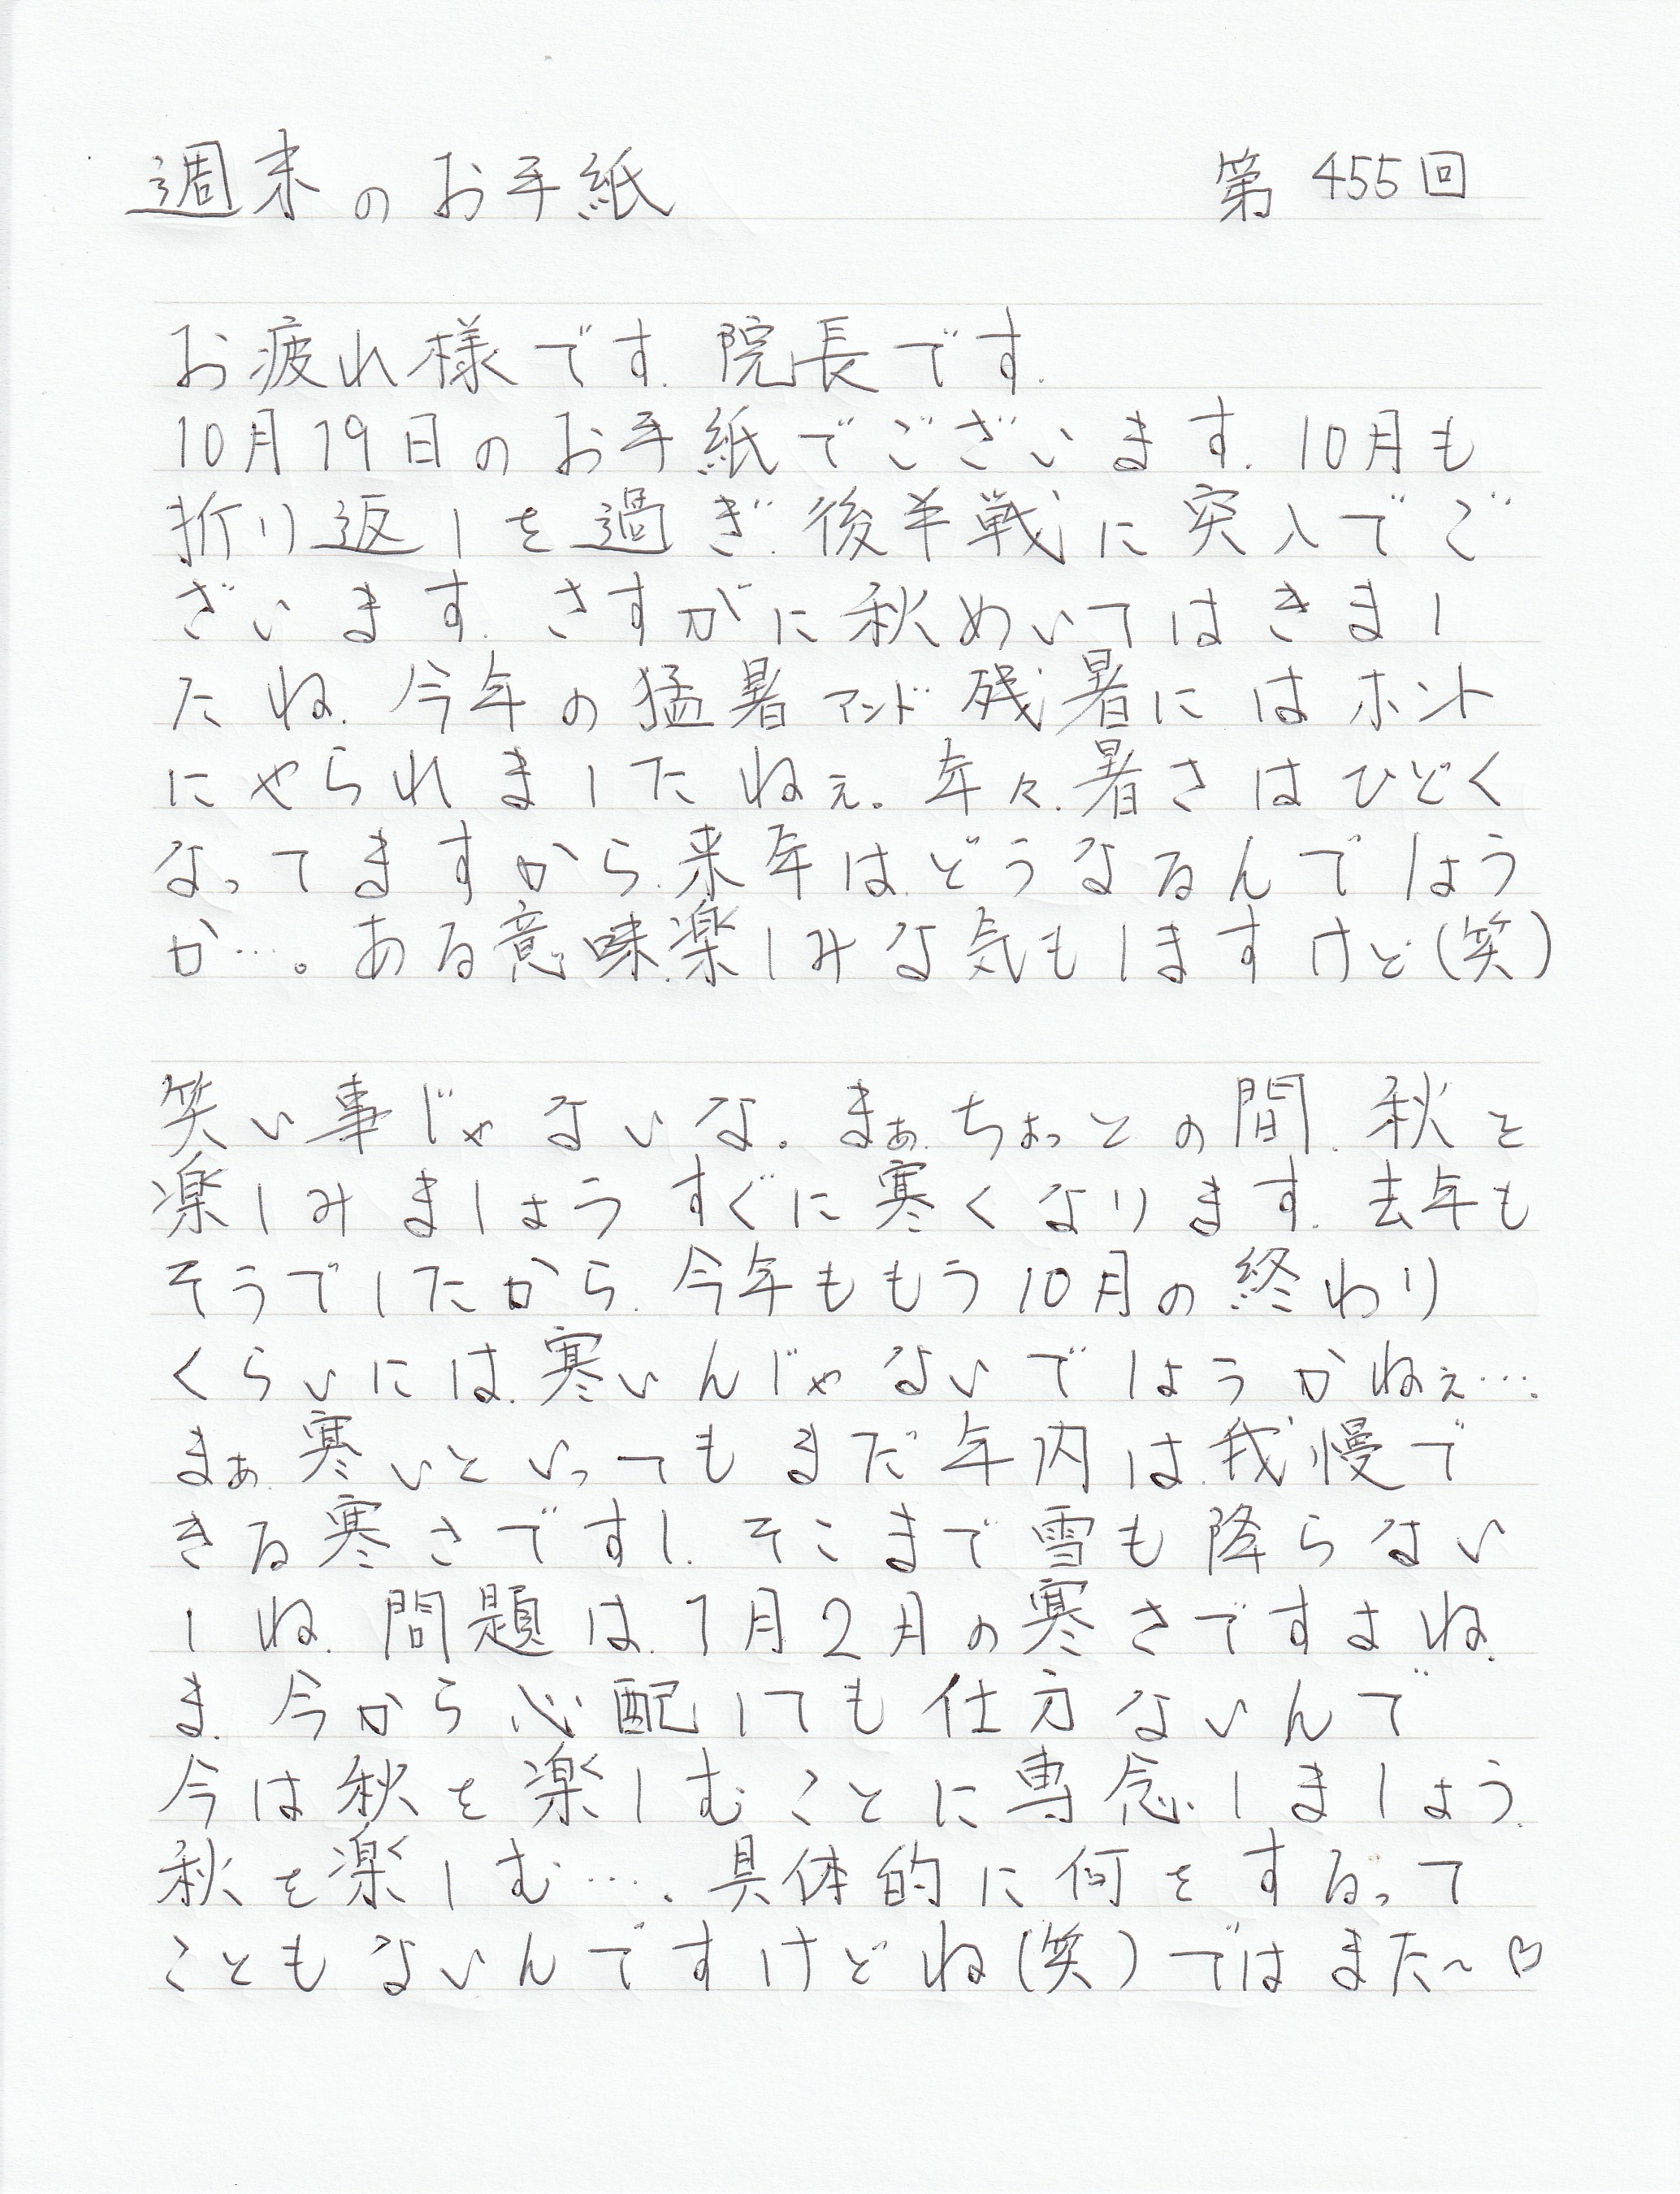 週末のお手紙 第455回
お疲れ様です. 院長です.
10月19日のお手紙でございます. 10月も
折り返しを過ぎ. 後半戦に突入でご
ざいます. さすがに秋めいてはきまし
たね. 今年の猛暑アンド残暑にはホント
にやられましたねぇ. 年々. 暑さはひどく
なってますから. 来年は. どうなるんでしょう
か…. ある意味. 楽しみな気もしますけど(笑)
笑い事じゃないな. まぁ. ちょっとの間. 秋を
楽しみましょう すぐに寒くなります. 去年も
そうでしたから. 今年ももう10月の終わり
くらいには. 寒いんじゃないでしょうかねぇ….
まぁ. 寒いといってもまだ年内は. 我慢で
きる寒さですし. そこまで雪も降らない
しね. 問題は. 1月2月の寒さですよね.
ま. 今から心配しても仕方ないんで
今は秋を楽しむことに専念しましょう.
秋を楽しむ…. 具体的に何をするって
こともないんですけどね(笑)ではまた~♡